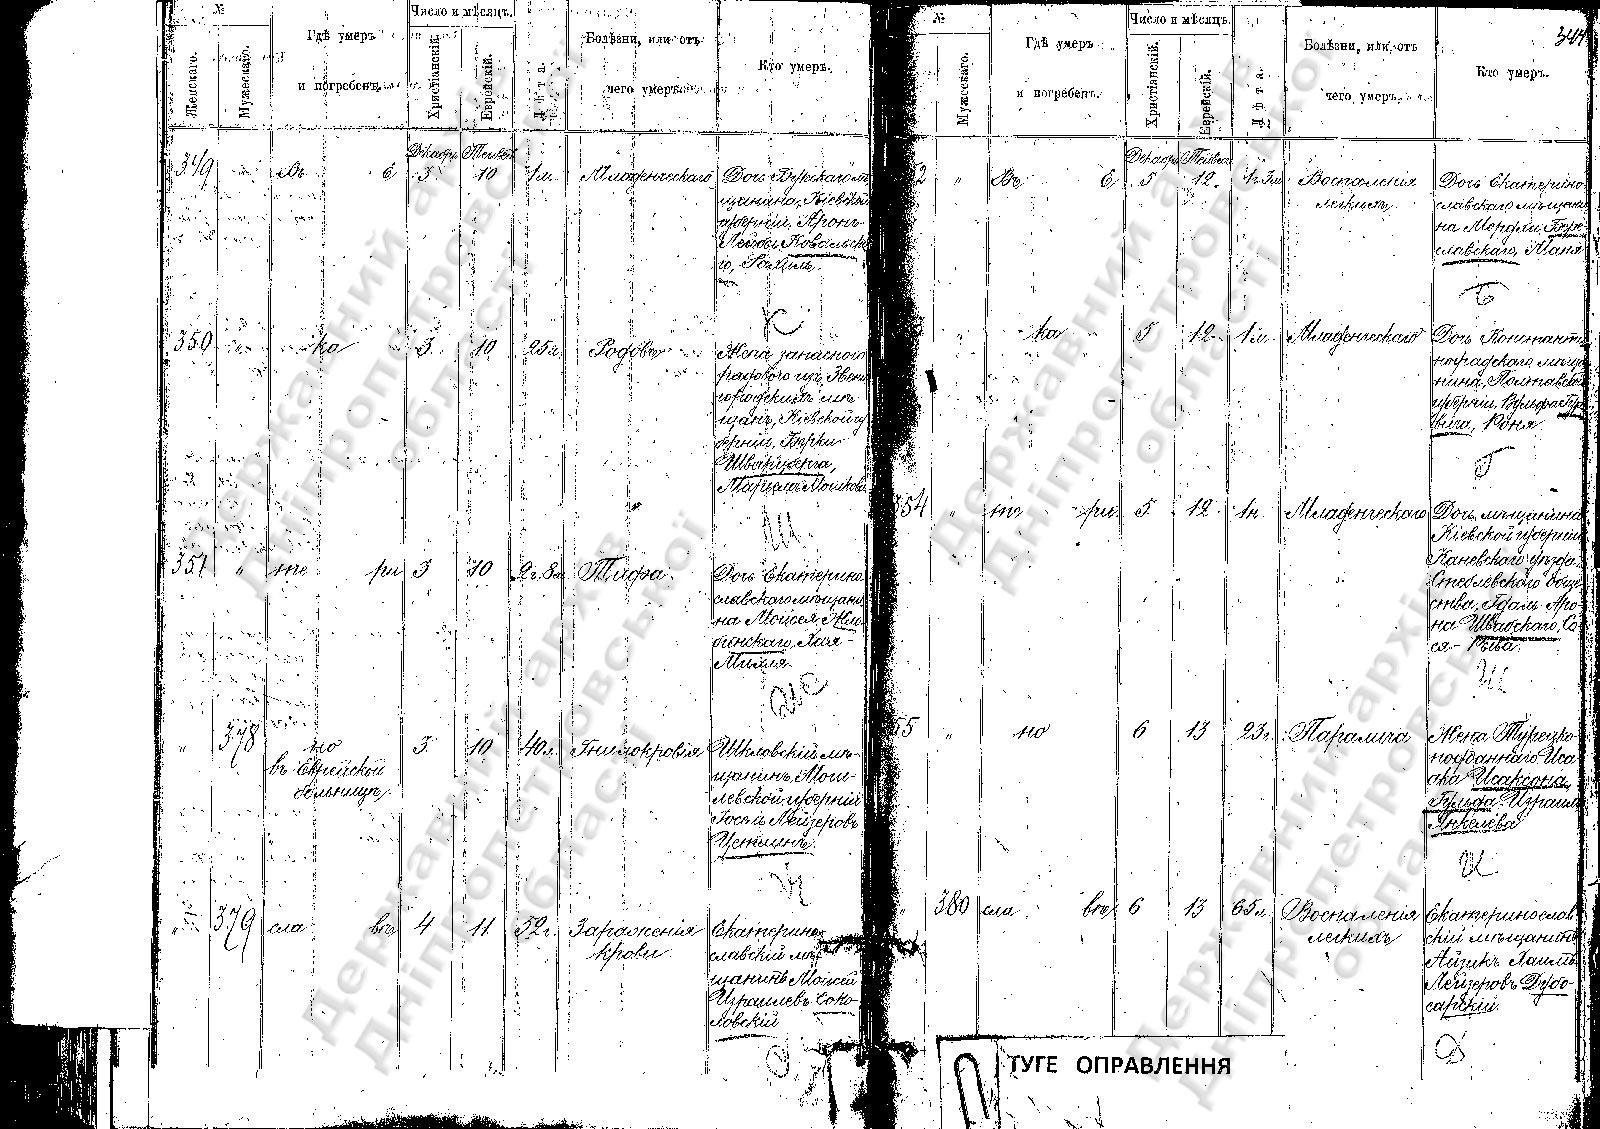 №
Женскаго.
Мужескаго.
Гдѣ умеръ
и погребенъ.
Число и мѣсяцъ.
Христіанскій.
Еврейскій.
Лѣта.
Болѣзни, или отъ
чего умеръ.
Кто умеръ.
349
Въ
Е
3
10
1 м.
Младенческаго
Дочь
щанина, Кіевской
губерніи, Аронъ
Лейбы Ковальска
го, Рохиль.
К
350
"
ка
3
10
25 л.
Родовъ
Жена запасного
рядового изъ Звени
городскихъ мѣ
щанъ, Кіевской гу
берніи, Берки
Шварцберга,
Ш
351
"
те
ри
3
10
2 г. 8 м.
Тифа
Дочь Екатерино
славскаго мѣщани
на Моисея
Хая-
"
378
но
въ Еврейской
больницѣ
3
10
40 л.
Гнилокровія
Шкловскій мѣ
щанинъ, Моги
левской губерніи
Іосель Лейзеровъ
Цетлинъ.
Ц
"
379
сла
вѣ
4
11
52 г.
Зараженія
крови
Екатерино
славскій мѣ
щанинъ Моисей
Израилевъ Соко
ловскій
С
№
Мужескаго.
Гдѣ умеръ
и погребенъ.
Число и мѣсяцъ.
Христіанскій.
Еврейскій.
Лѣта.
Болѣзни, или отъ
чего умеръ.
Кто умеръ.
344
2
"
Въ
Е
5
12
1 г. 3 м.
Воспаленія
легкихъ
Дочь Екатерино
славскаго мѣщани
на Мордки Бере
славскаго, Маня
Б
"
ка
5
12
1 м.
Младенческаго
Дочь Константи
ноградскаго мѣща
нина, Полтавской
губерніи, Вульфа Гур
вича, Роня
Г
354
"
те
ри
5
12
1 н.
Младенческаго
Дочь мѣщанина
Кіевской губерніи
Каневскаго уѣзда
Стеблевскаго обще
ства, Гдаль Аро
на Швабскаго, Со
ся-Рейза.
Ш
55
"
но
6
13
23 г.
Паралича
Жена Турецко
подданнаго Иса
ака Исаксона,
Гульда Израиль
Янкелева
И
"
380
сла
вѣ
6
13
65 л.
Воспаленія
легкихъ
Екатеринослав
скій мѣщанинъ
Айзикъ Хаимъ
Лейзеровъ Дубо
сарскій.
Д
ТУГЕ ОПРАВЛЕННЯ
Державний архів
Дніпропетровської
області